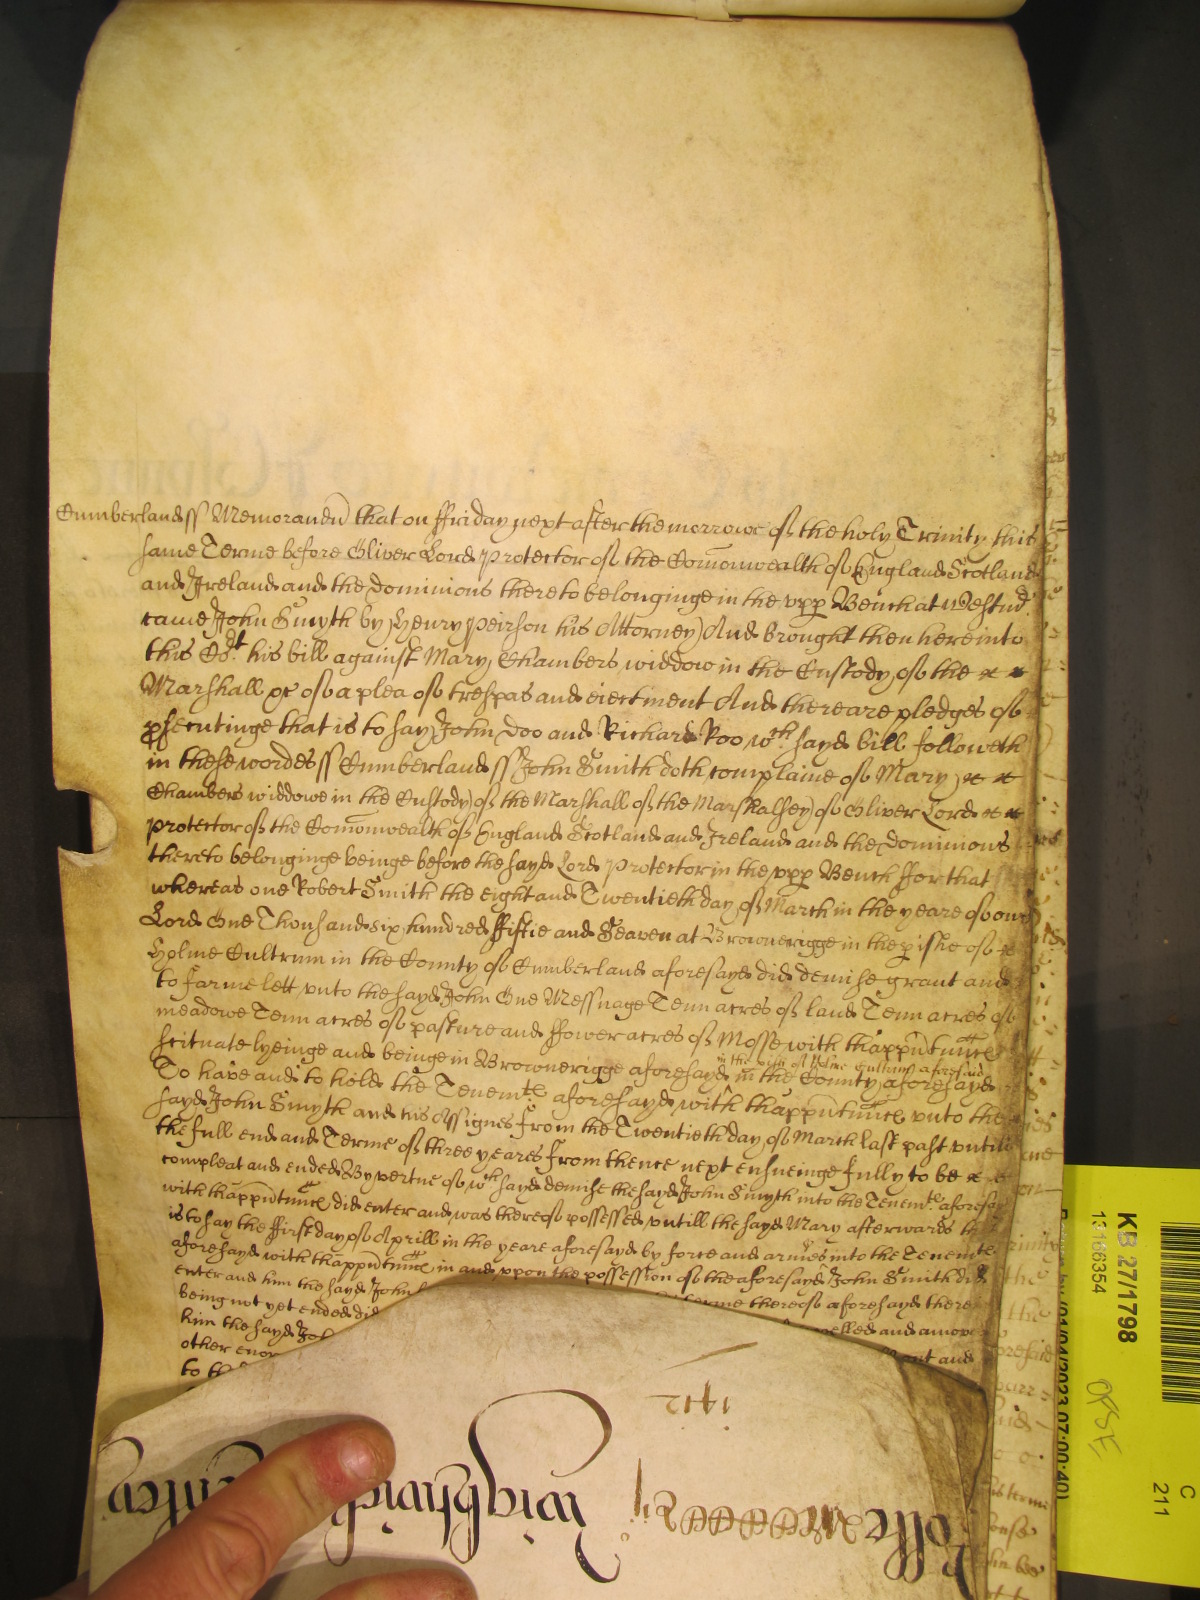 Cumberland ss Memorand that on ffriday next after the morrowe of the holy Trinity this
same Terme before Oliver Lord Protector of the Comonwealth of England Scotland
and Ireland and the Dominions thereto belonginge in the upp Bench at Westm
came John Smyth by Henry Peirson his Attorney And brought then here into
this Cort his bill against Mary Chambers widdow in the Custody of the
Marshall &c of a plea of trespas and eiectment And there are pledges of
psecutinge that is to say John Doo and Richard Roo wch sayd bill followeth
in these wordes ss Cumberland ss John Smith doth complaine of Mary
Chambers widdowe in the Custody of the Marshall of the Marshalsey of Oliver Lord
Protector of the Comonwealth of England Scotland and Ireland and the Dominions
thereto belonginge beinge before the sayd Lord Protector in the upp Bench ffor that
whereas one Robert Smith the eight and Twentieth day of March in the yeare of our
Lord One Thousand six hundred fiftie and Seaven at Brownerigge in the pishe of
Holme Cultrum in the County of Cumberland aforesayd did demise grant and
to farme lett unto the sayd John One Messuage Tenn acres of land Tenn acres of
meadowe Tenn acres of pasture and ffower acres of Mosse with thapptunce
scituate lyeinge and beinge in Brownerigge aforesayd in the pish of Holme Cultrum aforesaid in the County aforesayd
To have and to hold the Tenemte aforesayd with thapptunce unto the
sayd John Smyth and his Assignes from the Twentieth day of March last past untill
the full end and Terme of three yeares from thence next ensueinge fully to be
compleat and ended By vertue of wch sayd demise the sayd John Smyth into the Tenemte aforesay
with thapptunce did enter and was thereof possessed untill the sayd Mary afterwards
is to say the ffirst day of Aprill in the yeare aforesayd by force and armes into the Tenemte
aforesayd with thapptunce in and uppon the possession of the aforesayd John Smith did
enter and him the sayd John terme thereof aforesayd there
being not yet ended did and amov
him the sayd
other enor and
to th
1412
Rolle
Wightwick
KB 27/1798
13166354
01/04/2023 07:00:40)
C
211